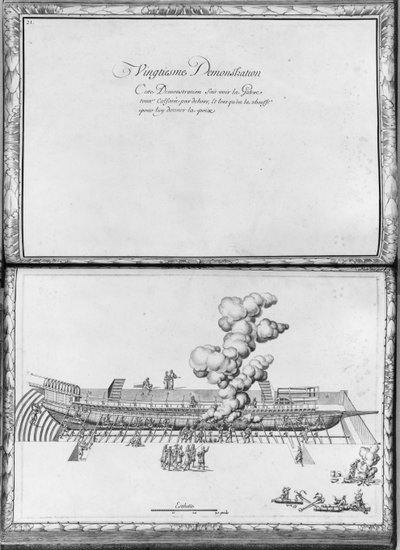 21.
Vingtiesme Demonstration
Cette Demonstration fait voir la Galere
toute Calfatée par dehors, et lors qu'on la chauffe
pour luy donner la poix
Eschelle